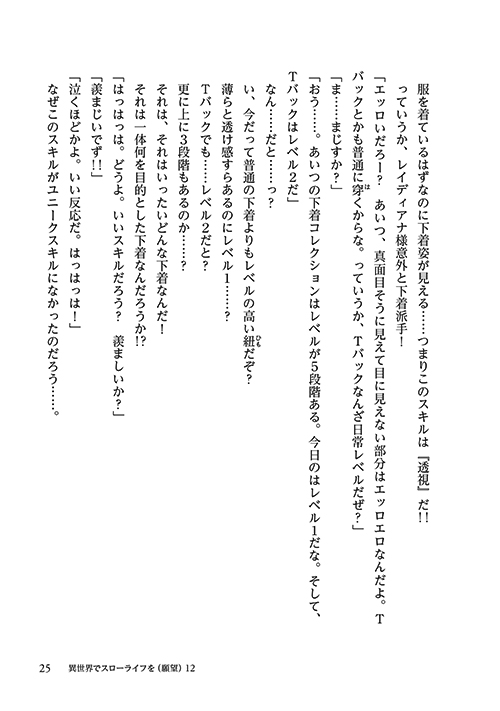 服を着ているはずなのに下着姿が見える……つまりこのスキルは『透視』だ!!
っていうか、レイディアナ様意外と下着派手！
「エッロいだろー？　あいつ、真面目そうに見えて目に見えない部分はエッロエロなんだよ。T
バックとかも普通に穿くからな。っていうか、Tバックなんざ日常レベルだぜ？」
は
「ま……まじすか？」
「おう……。あいつの下着コレクションはレベルが５段階ある。今日のはレベル１だな。そして、
Tバックはレベル２だ」
なん……だと……っ？
い、今だって普通の下着よりもレベルの高い紐だぞ？
ひも
薄らと透け感すらあるのにレベル１……？
Tバックでも……レベル２だと？
更に上に３段階もあるのか……？
それは、それはいったいどんな下着なんだ！
それは一体何を目的とした下着なんだろうか!?
「はっはっは。どうよ。いいスキルだろう？　羨ましいか？」
「羨まじいです!!」
「泣くほどかよ。いい反応だ。はっはっは！」
なぜこのスキルがユニークスキルになかったのだろう……。
25　異世界でスローライフを（願望）12